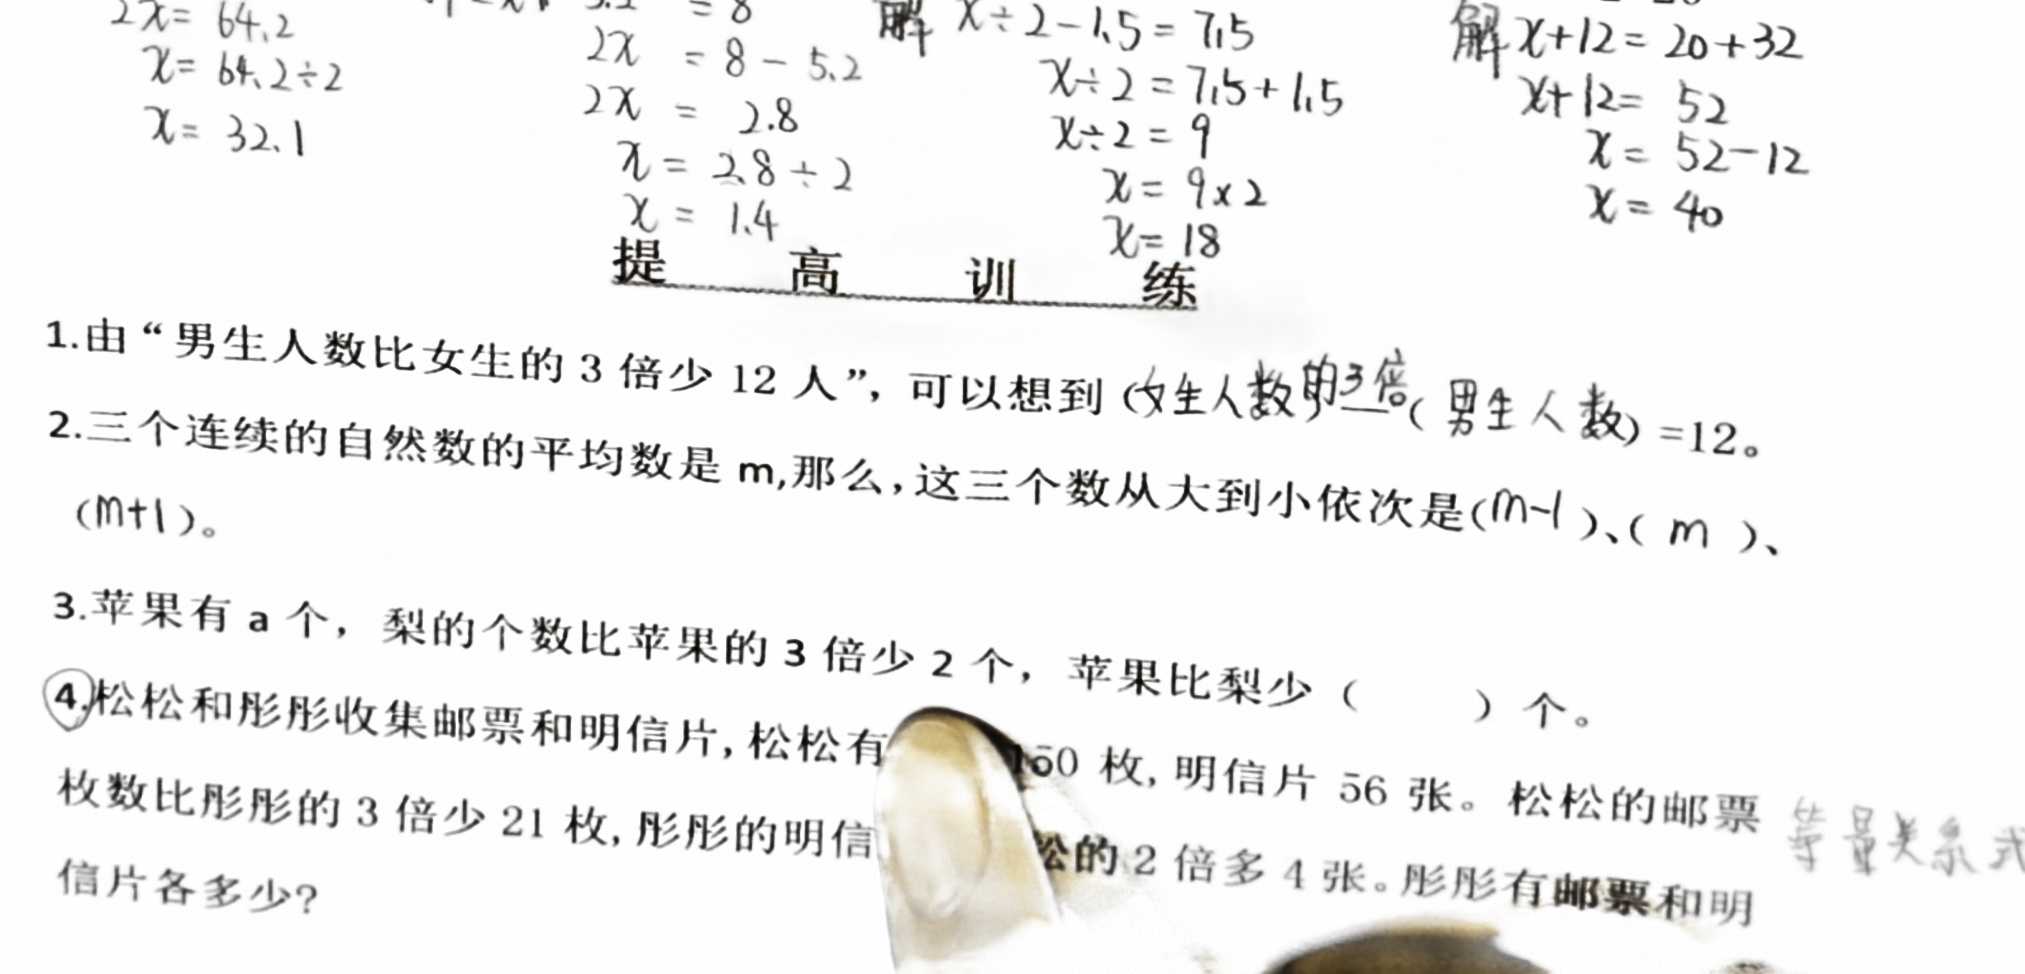 2x= 64.2
x= 64.2÷2
x= 32.1
= 8
2x = 8-5.2
2x = 2.8
x = 2.8÷2
x = 1.4
解 x÷2-1.5=7.5
x÷2=7.5+1.5
x÷2=9
x=9×2
x=18
解 x+12=20+32
x+12= 52
x= 52-12
x= 40
提高训练
1.由“男生人数比女生的3倍少12人”，可以想到(女生人数的3倍)—(男生人数)=12。
2.三个连续的自然数的平均数是m,那么,这三个数从大到小依次是(m-1)、(m)、
(m+1)。
3.苹果有a个，梨的个数比苹果的3倍少2个，苹果比梨少（ ）个。
4.松松和彤彤收集邮票和明信片,松松有 150枚,明信片56张。松松的邮票
枚数比彤彤的3倍少21枚,彤彤的明信 松的2倍多4张。彤彤有邮票和明
信片各多少?
等量关系式